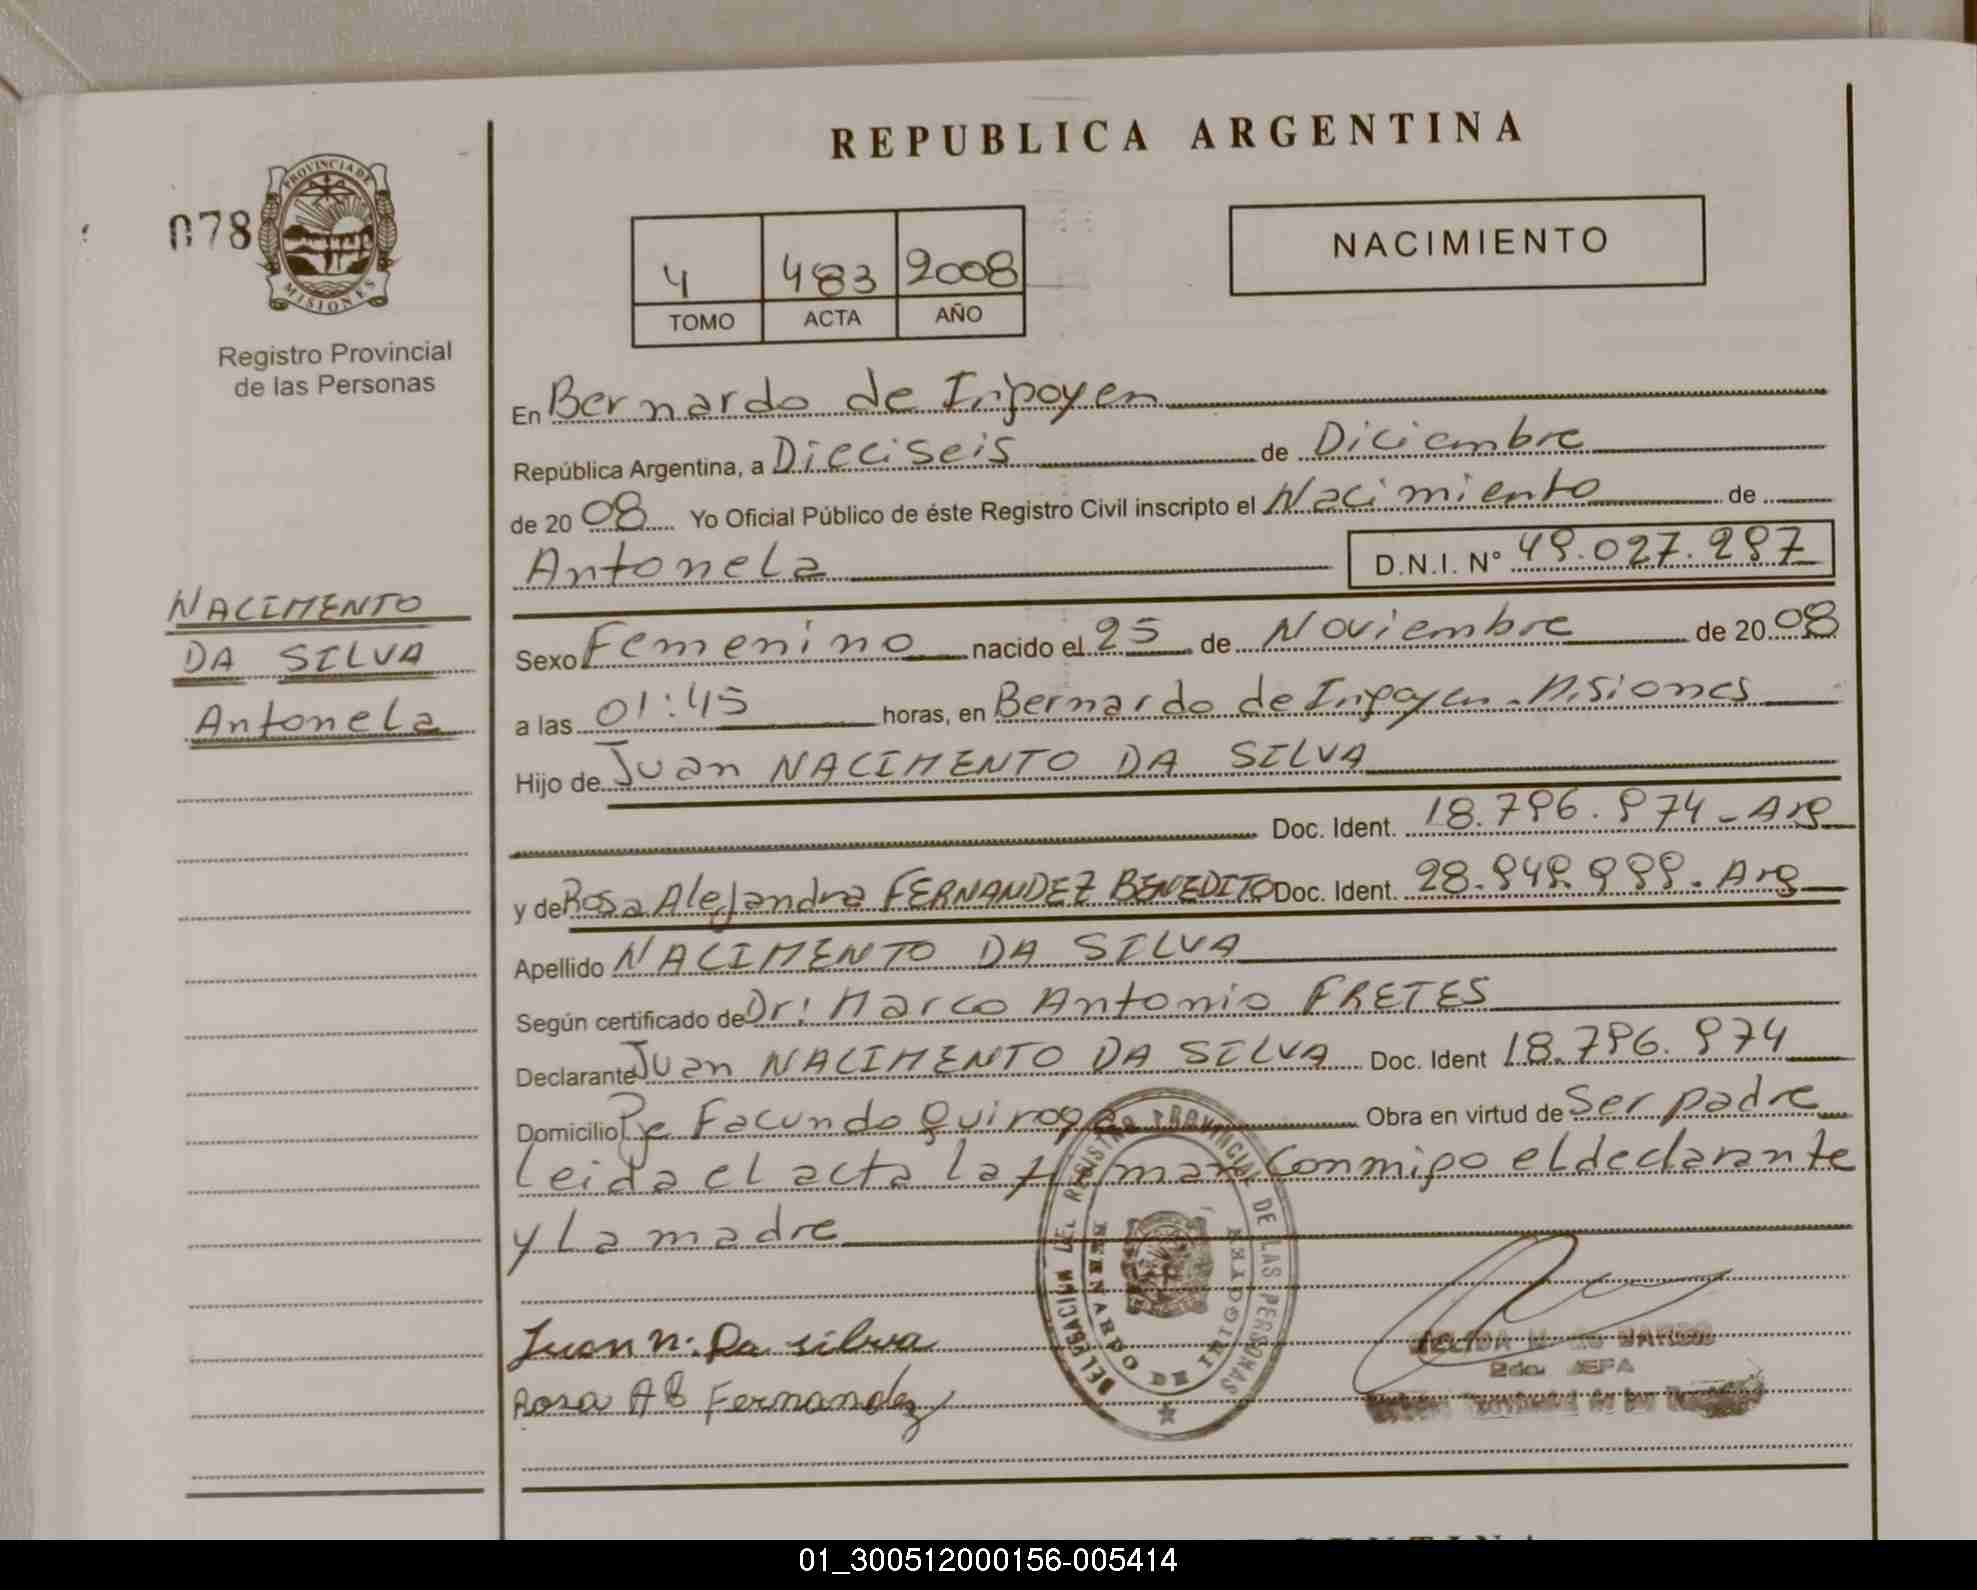 REPUBLICA ARGENTINA
078
PROVINCIA DE
MISIONES
Registro Provincial
de las Personas
NACIMIENTO
4 483 2008
TOMO ACTA AÑO
En Bernardo de Irigoyen
República Argentina, a Dieciseis de Diciembre
de 20 08 Yo Oficial Público de éste Registro Civil inscripto el Nacimiento de
Antonela D.N.I. N° 49.027.297
NACIMENTO
DA SILVA
Antonela
Sexo Femenino nacido el 25 de Noviembre de 20 08
a las 01:45 horas, en Bernardo de Irigoyen - Misiones
Hijo de Juan NACIMENTO DA SILVA
Doc. Ident. 18.796.974 - Arg
y de Rosa Alejandra FERNANDEZ BENEDITO Doc. Ident. 28.949.999 - Arg
Apellido NACIMENTO DA SILVA
Según certificado de Dr: Marco Antonio FRETES
Declarante Juan NACIMENTO DA SILVA Doc. Ident 18.796.974
Domicilio Pje Facundo Quiroga Obra en virtud de Ser padre
Leida el acta la firman Conmigo el declarante
y La madre
DELEGACION DEL REGISTRO PROVINCIAL DE LAS PERSONAS
BERNARDO DE IRIGOYEN
Juan N. Da silva
Rosa AB Fernandez
2da. JEFA
01_300512000156-005414